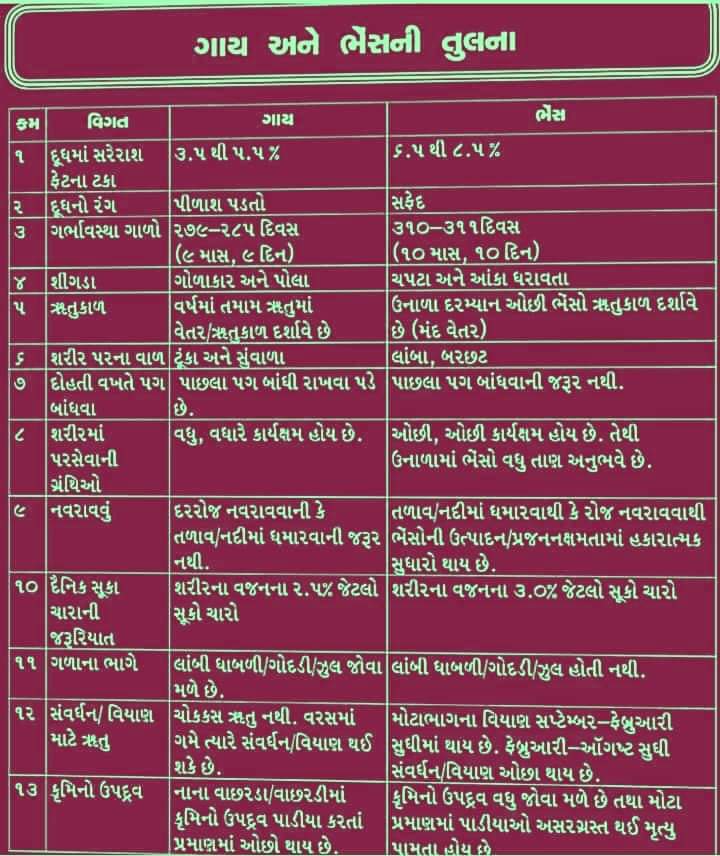 ગાય અને ભેંસની તુલના
ક્રમ વિગત ગાય ભેંસ
૧ દૂધમાં સરેરાશ ફેટના ટકા ૩.૫ થી ૫.૫ % ૬.૫ થી ૮.૫ %
૨ દૂધનો રંગ પીળાશ પડતો સફેદ
૩ ગર્ભાવસ્થા ગાળો ૨૭૯–૨૮૫ દિવસ (૯ માસ, ૯ દિન) ૩૧૦–૩૧૧દિવસ (૧૦ માસ, ૧૦ દિન)
૪ શીંગડા ગોળાકાર અને પોલા ચપટા અને આંકા ધરાવતા
૫ ઋતુકાળ વર્ષમાં તમામ ઋતુમાં વેતર/ઋતુકાળ દર્શાવે છે ઉનાળા દરમ્યાન ઓછી ભેંસો ઋતુકાળ દર્શાવે છે (મંદ વેતર)
૬ શરીર પરના વાળ ટૂંકા અને સુંવાળા લાંબા, બરછટ
૭ દોહતી વખતે પગ બાંધવા પાછલા પગ બાંધી રાખવા પડે છે. પાછલા પગ બાંધવાની જરૂર નથી.
૮ શરીરમાં પરસેવાની ગ્રંથિઓ વધુ, વધારે કાર્યક્ષમ હોય છે. ઓછી, ઓછી કાર્યક્ષમ હોય છે. તેથી ઉનાળામાં ભેંસો વધુ તાણ અનુભવે છે.
૯ નવરાવવું દરરોજ નવરાવવાની કે તળાવ/નદીમાં ધમારવાની જરૂર નથી. તળાવ/નદીમાં ધમારવાથી કે રોજ નવરાવવાથી ભેંસોની ઉત્પાદન/પ્રજનનક્ષમતામાં હકારાત્મક સુધારો થાય છે.
૧૦ દૈનિક સૂકા ચારાની જરૂરિયાત શરીરના વજનના ૨.૫% જેટલો સૂકો ચારો શરીરના વજનના ૩.૦% જેટલો સૂકો ચારો
૧૧ ગળાના ભાગે લાંબી ધાબળી/ગોદડી/ઝુલ જોવા મળે છે. લાંબી ધાબળી/ગોદડી/ઝુલ હોતી નથી.
૧૨ સંવર્ધન/ વિયાણ માટે ઋતુ ચોકકસ ઋતુ નથી. વરસમાં ગમે ત્યારે સંવર્ધન/વિયાણ થઈ શકે છે. મોટાભાગના વિયાણ સપ્ટેમ્બર–ફેબ્રુઆરી સુધીમાં થાય છે. ફેબ્રુઆરી–ઑગષ્ટ સુધી સંવર્ધન/વિયાણ ઓછા થાય છે.
૧૩ કૃમિનો ઉપદ્રવ નાના વાછરડા/વાછરડીમાં કૃમિનો ઉપદ્રવ પાડીયા કરતાં પ્રમાણમાં ઓછો થાય છે. કૃમિનો ઉપદ્રવ વધુ જોવા મળે છે તથા મોટા પ્રમાણમાં પાડીયાઓ અસરગ્રસ્ત થઈ મૃત્યુ પામતા હોય છે